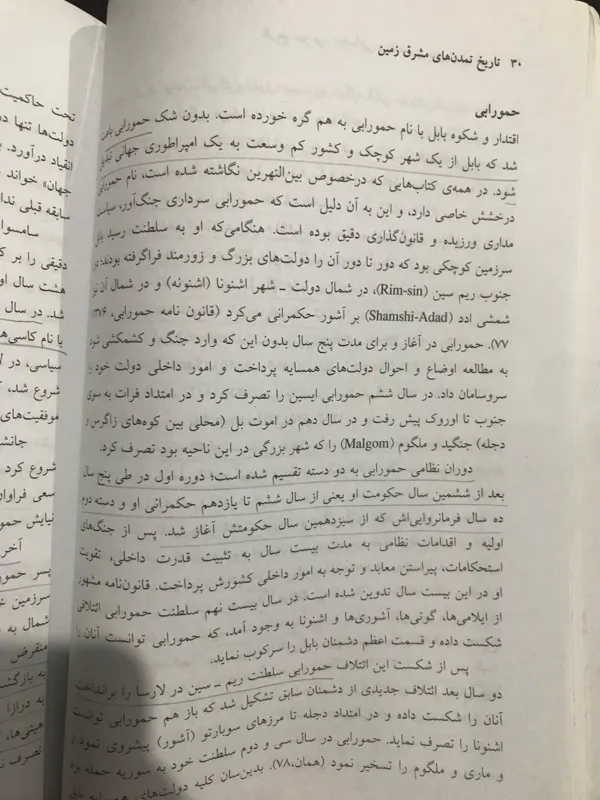 ۳۰ تاریخ تمدن‌های مشرق زمین
حمورابی
اقتدار و شکوه بابل با نام حمورابی به هم گره خورده است. بدون شک حمورابی باعث
شد که بابل از یک شهر کوچک و کشور کم وسعت به یک امپراطوری جهانی تبدیل
شود. در همه‌ی کتاب‌هایی که درخصوص بین‌النهرین نگاشته شده است، نام حمورابی
درخشش خاصی دارد، و این به آن دلیل است که حمورابی سرداری جنگ‌آور، سیاست
مداری ورزیده و قانون‌گذاری دقیق بوده است. هنگامی‌که او به سلطنت رسید بابل
سرزمین کوچکی بود که دور تا دور آن را دولت‌های بزرگ و زورمند فراگرفته بودند؛ در
جنوب ریم سین (Rim-sin)، در شمال دولت ـ شهر اشنونا (اشنونه) و در شمال آن نیز
شمشی ادد (Shamshi-Adad) بر آشور حکمرانی می‌کرد (قانون نامه حمورابی، ۱۳۷۶:
۷۷). حمورابی در آغاز و برای مدت پنج سال بدون این که وارد جنگ و کشمکشی شود
به مطالعه اوضاع و احوال دولت‌های همسایه پرداخت و امور داخلی دولت خود را
سروسامان داد. در سال ششم حمورابی ایسین را تصرف کرد و در امتداد فرات به سوی
جنوب تا اوروک پیش رفت و در سال دهم در اموت بل (محلی بین کوه‌های زاگرس و
دجله) جنگید و ملگوم (Malgom) را که شهر بزرگی در این ناحیه بود تصرف کرد.
دوران نظامی حمورابی به دو دسته تقسیم شده است؛ دوره اول در طی پنج سال
بعد از ششمین سال حکومت او یعنی از سال ششم تا یازدهم حکمرانی او و دسته دوم
ده سال فرمانروایی‌اش که از سیزدهمین سال حکومتش آغاز شد. پس از جنگ‌های
اولیه و اقدامات نظامی به مدت بیست سال به تثبیت قدرت داخلی، تقویت
استحکامات، پیراستن معابد و توجه به امور داخلی کشورش پرداخت. قانون‌نامه مشهور
او در این بیست سال تدوین شده است. در سال بیست نهم سلطنت حمورابی ائتلافی
از ایلامی‌ها، گوتی‌ها، آشوری‌ها و اشنونا به وجود آمد، که حمورابی توانست آنان را
شکست داده و قسمت اعظم دشمنان بابل را سرکوب نماید.
پس از شکست این ائتلاف حمورابی سلطنت ریم ـ سین در لارسا را برانداخت.
دو سال بعد ائتلاف جدیدی از دشمنان سابق تشکیل شد که باز هم حمورابی توانست
آنان را شکست داده و در امتداد دجله تا مرزهای سوبارتو (آشور) پیشروی نمود و
اشنونا را تصرف نماید. حمورابی در سال سی و دوم سلطنت خود به سوریه حمله برد
و ماری و ملگوم را تسخیر نمود (همان،۷۸). بدین‌سان کلیه دولت‌های
تحت حاکمیت
دولت‌ها تنها
انقیاد درآورد.
جهان» خواند
سابقه قبلی
سامسوا
دقیقی را بر
هشت سال او
شد. در سال
با نام کاسی‌ها
سیاسی، در
شروع شد،
موفقیت‌های
جانش
شروع کرد
سعی فراوان
نیایش حمو
آخر
پسر حمور
سرزمین
شمال به
منقرض
به بازگش
به درازا
هیتی‌ها،
تصرف